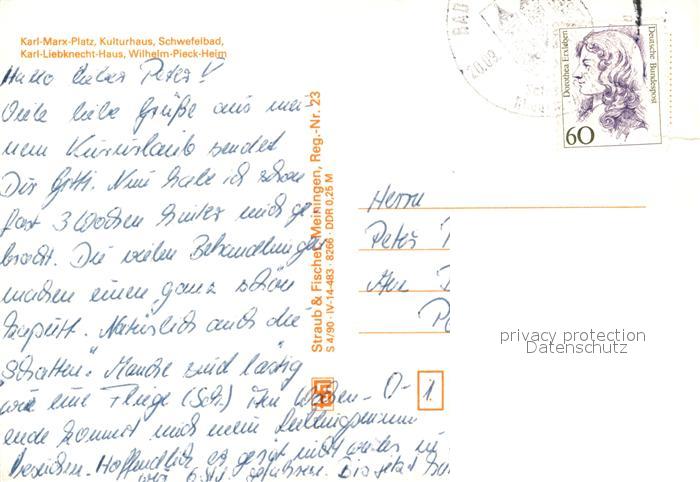 Karl-Marx-Platz, Kulturhaus, Schwefelbad,
Karl-Liebknecht-Haus, Wilhelm-Pieck-Heim
Hallo lieber Peter!
Viele liebe Grüße aus mei-
nem Kururlaub sendet
Dir Gitti. Nun habe ich schon
fast 3 Wochen hinter mich ge-
bracht. Die vielen Behandlungen
machen einen ganz schön
kaputt. Natürlich auch die
"Schatten". Manche sind lästig
wie eine Fliege (Sch.) Am Wochen-
ende kommt mich mein Lieblingsmann
besuchen. Hoffentlich
Bis jetzt
Straub & Fischer, Meiningen, Reg.-Nr. 23
S 4/90 · IV-14-483 · 8266 · DDR 0,25 M
BAD
20.09.
Dorothea Erxleben
Deutsche Bundespost
60
Herrn
Peter
O-1
privacy protection
Datenschutz